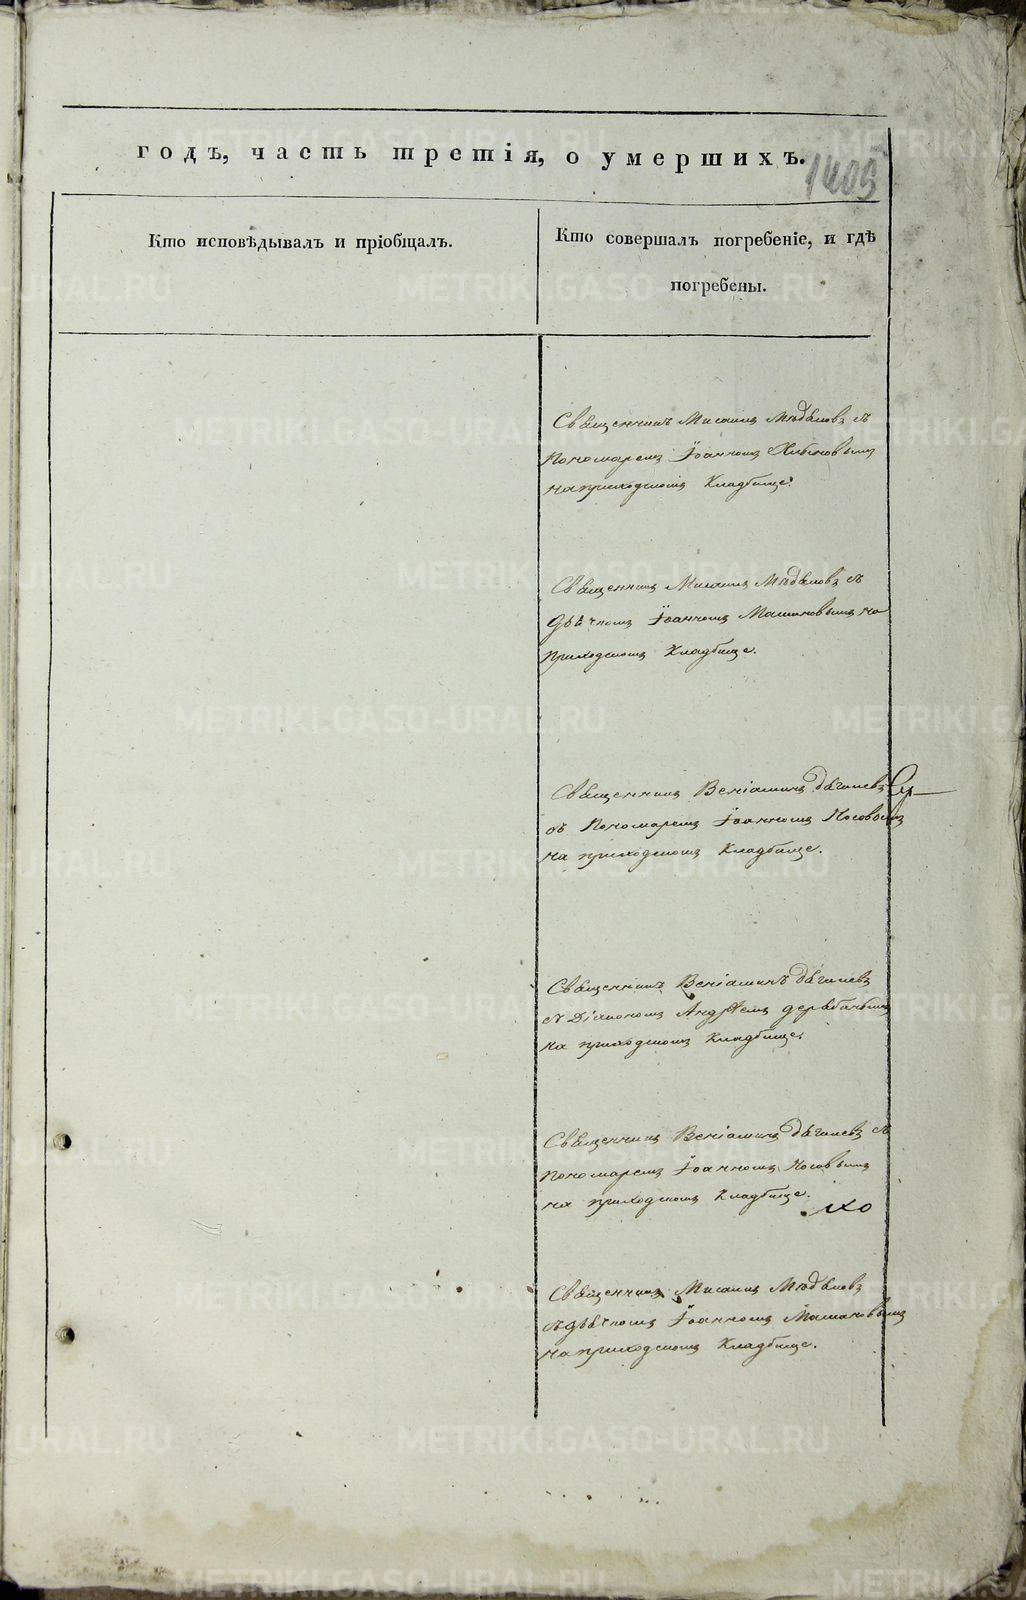 годъ, часть третія, о умершихъ.
1405
Кто исповѣдывалъ и пріобщалъ.
Кто совершалъ погребеніе, и гдѣ
погребены.
Священникъ Михаилъ съ
Пономаремъ Іоанномъ
на приходскомъ Кладбище.
Священникъ Михаилъ съ
дьячкомъ Іоанномъ на
приходскомъ Кладбище.
Священникъ Веніаминъ Дягилевъ
съ Пономаремъ Іоанномъ Носовымъ
на приходскомъ Кладбище.
Священникъ Веніаминъ Дягилевъ
съ Діакономъ Андреемъ
на приходскомъ Кладбище.
Священникъ Веніаминъ Дягилевъ съ
пономаремъ Іоанномъ Носовымъ
на приходскомъ Кладбище.
Священникъ Михаилъ
съ дьячкомъ Іоанномъ
на приходскомъ Кладбище.
METRIKI.GASO-URAL.RU